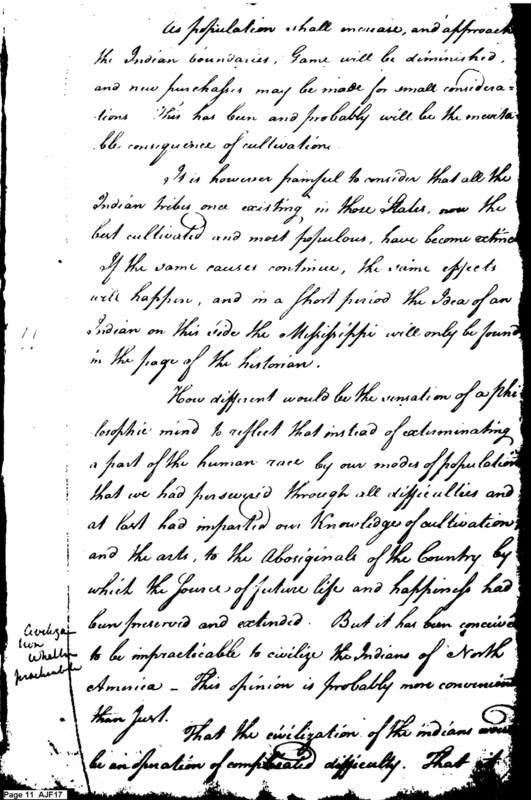 As population shall increase, and approach
the Indian boundaries, Game will be diminished,
and new purchases may be made for small considera-
tions This has been and probably will be the inevita-
ble consequence of cultivation
It is however painful to consider that all the
Indian tribes once existing in those States, now the
best cultivated and most populous, have become extinc
If the same causes continue, the same effects
will happen, and in a short period the Idea of an
Indian on this side the Mississippi will only be found
in the page of the historian.
How different would be the sensation of a phi-
losophic mind to reflect that instead of exterminating
a part of the human race by our modes of population
that we had persevered through all difficulties and
at last had imparted our Knowledge of cultivation
and the arts, to the Aboriginals of the Country by
which the Source of future life and happiness had
been preserved and extended. But it has been conceive
Civiliza
tion
whether
practicable
to be impracticable to civilize the Indians of North
America – This opinion is probably more convenient
than Just.
That the civilization of the indians would
be an operation of complicated difficulty. That it
Page 11 AJF17